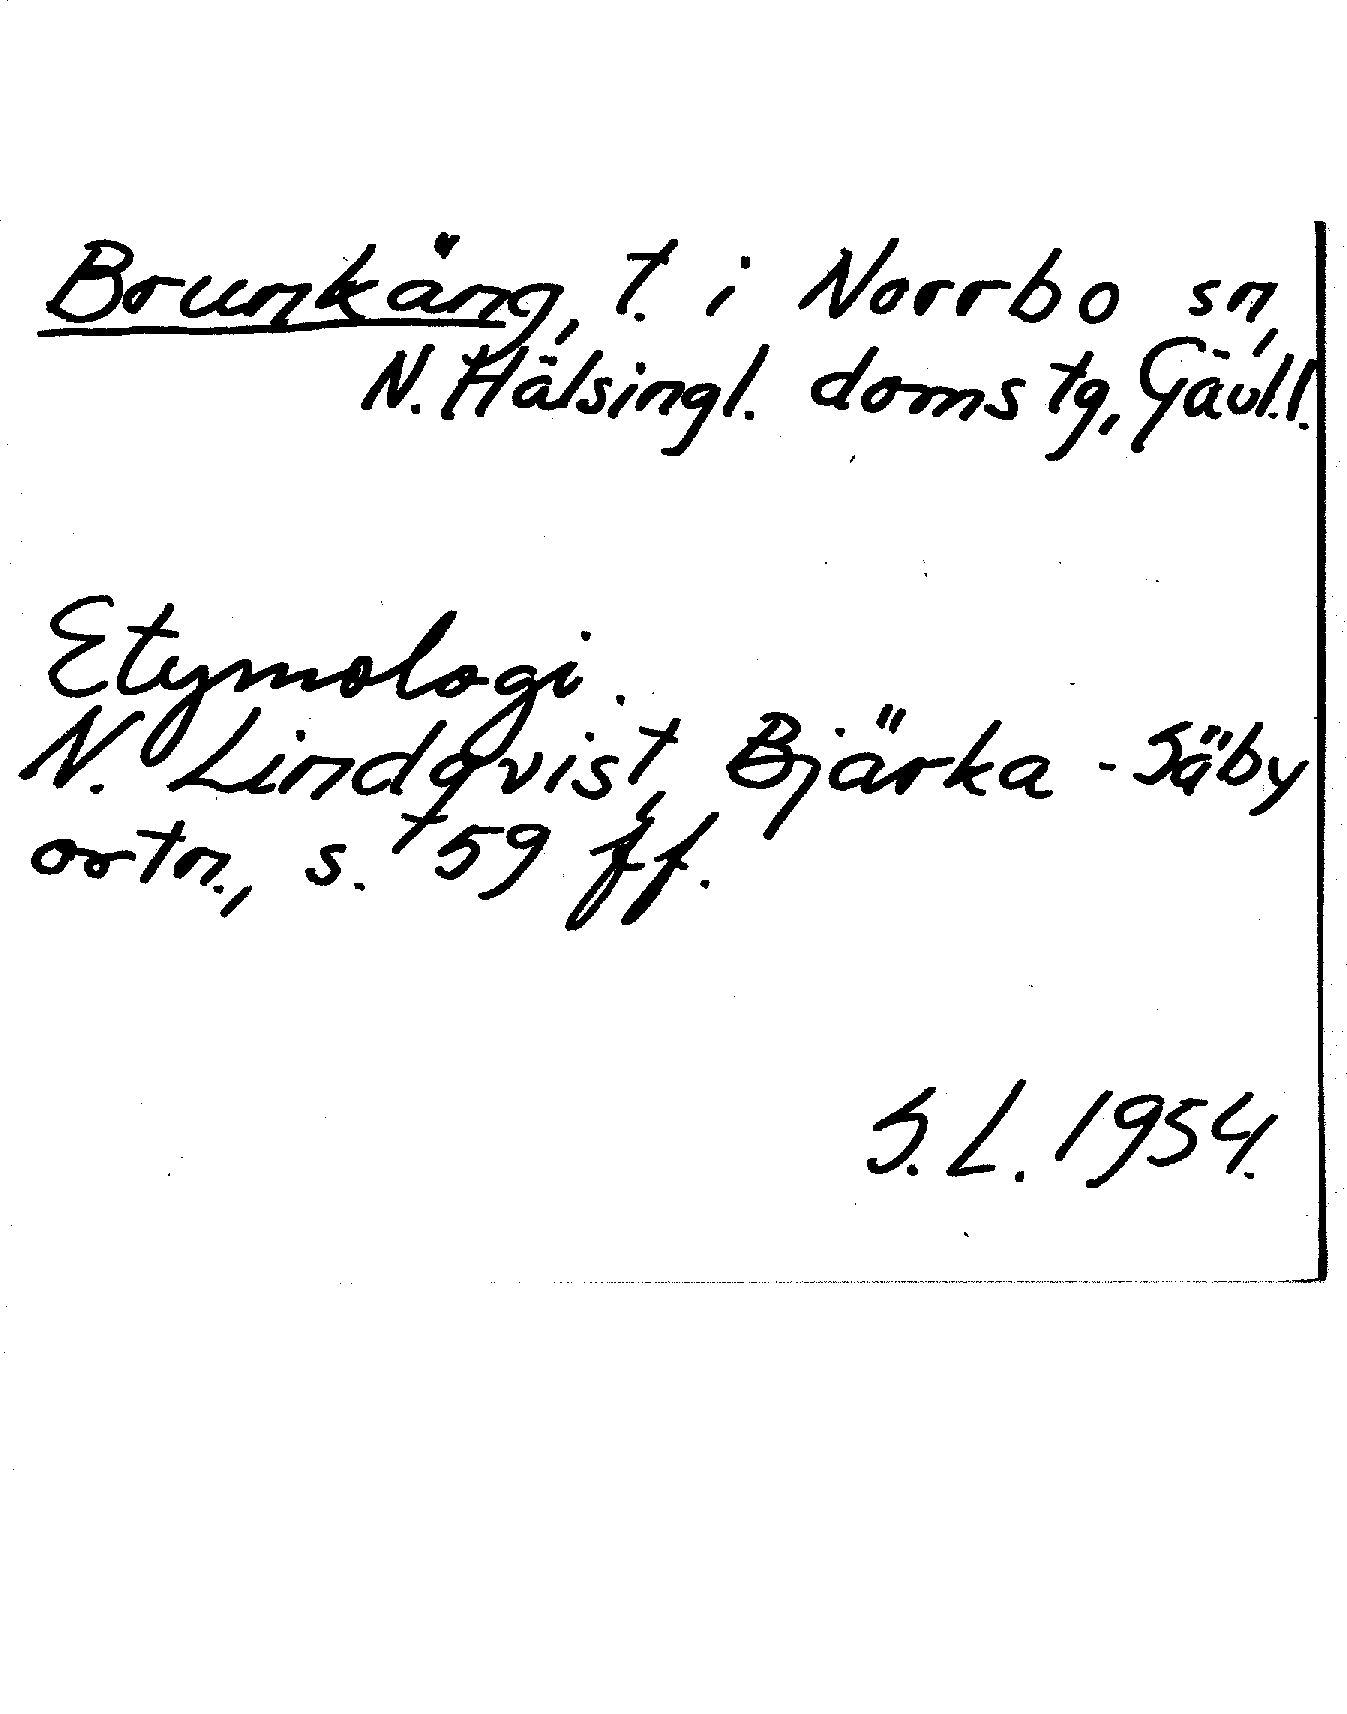 Brunkäng, t. i Norrbo sn,
N. Hälsingl. domstg, Gävl.l.
Etymologi.
N. Lindqvist, Bjärka-Säby
ortn., s. 759 ff.
S. L. 1954.